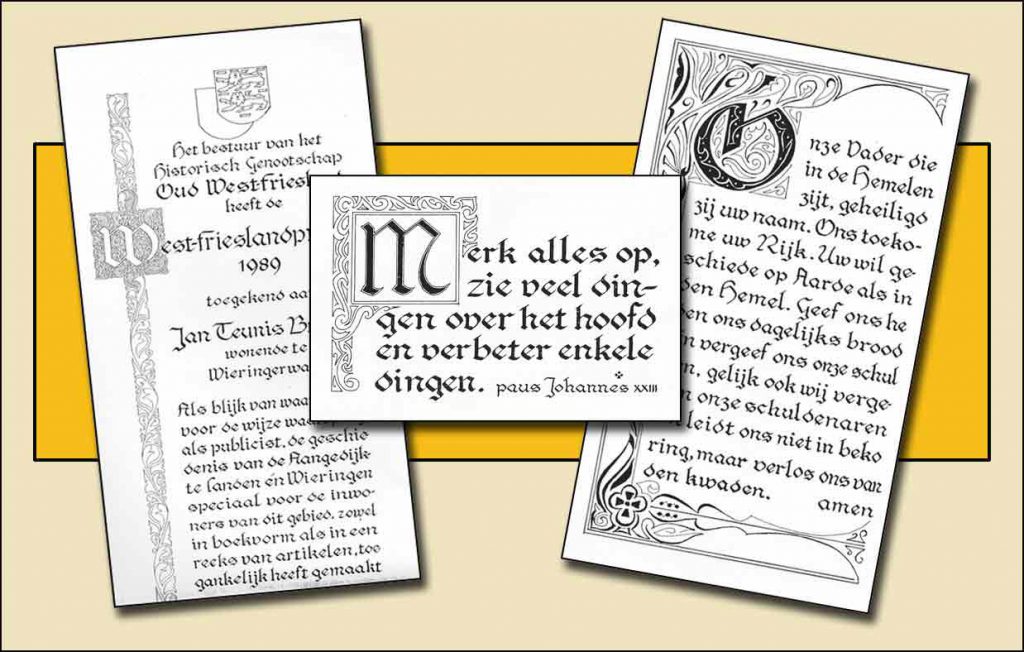 Het bestuur van het
Historisch Genootschap
Oud West-friesl
heeft de
West-frieslandp
1989
toegekend aa
Jan Teunis B
wonende te
Wieringerwa
Als blijk van waa
voor de wijze waa
als publicist, de geschie
denis van de Aangedijk
te landen én Wieringen
speciaal voor de inwo-
ners van dit gebied, zowel
in boekvorm als in een
reeks van artikelen, toe
gankelijk heeft gemaakt
Merk alles op,
zie veel din-
gen over het hoofd
en verbeter enkele
dingen. paus Johannes XXIII
Onze Vader die
in de Hemelen
zijt, geheiligd
zij uw naam. Ons toeko-
me uw Rijk. Uw wil ge
schiede op Aarde als in
den Hemel. Geef ons he
en ons dagelijks brood
n vergeef ons onze schul
n, gelijk ook wij verge-
n onze schuldenaren
leidt ons niet in beko
ring, maar verlos ons van
den kwaden.
amen